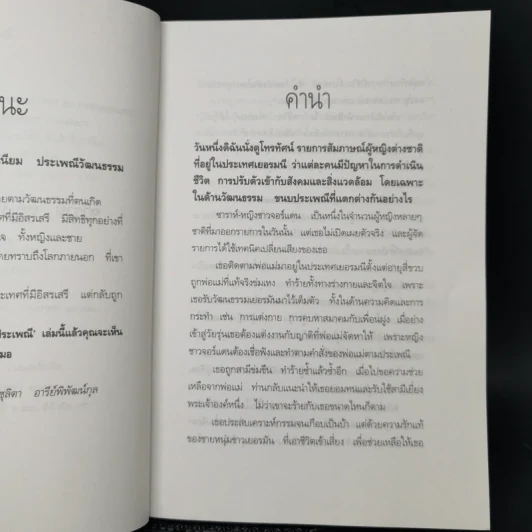 นะ
นิยม ประเพณีวัฒนธรรม
ยตามวัฒนธรรมที่ตนเกิด
ศที่มีอิสรเสรี มีสิทธิทุกอย่างที่
จ ทั้งหญิงและชาย
ดยทราบถึงโลกภายนอก ที่เขา
ะเทศที่มีอิสรเสรี แต่กลับถูก
ประเพณี' เล่มนี้แล้วคุณจะเห็น
มอ
ชุลิตา อารีย์พิพัฒน์กุล
คำนำ
วันหนึ่งดิฉันนั่งดูโทรทัศน์ รายการสัมภาษณ์ผู้หญิงต่างชาติ
ที่อยู่ในประเทศเยอรมนี ว่าแต่ละคนมีปัญหาในการดำเนิน
ชีวิต การปรับตัวเข้ากับสังคมและสิ่งแวดล้อม โดยเฉพาะ
ในด้านวัฒนธรรม ขนบประเพณีที่แตกต่างกันอย่างไร
ซาราห์-หญิงชาวจอร์แดน เป็นหนึ่งในจำนวนผู้หญิงหลายๆ
ชาติที่มาออกรายการในวันนั้น แต่เธอไม่เปิดเผยตัวจริง และผู้จัด
รายการได้ใช้เทคนิคเปลี่ยนเสียงของเธอ
เธอติดตามพ่อแม่มาอยู่ในประเทศเยอรมนีตั้งแต่อายุสี่ขวบ
ถูกพ่อแม่ที่แท้จริงข่มเหง ทำร้ายทั้งทางร่างกายและจิตใจ เพราะ
เธอรับวัฒนธรรมเยอรมันมาไว้เต็มตัว ทั้งในด้านความคิดและการ
กระทำ เช่น การแต่งกาย การคบหาสมาคมกับเพื่อนฝูง เมื่อย่าง
เข้าสู่วัยรุ่นเธอต้องแต่งงานกับญาติที่พ่อแม่จัดหาให้ เพราะหญิง
ชาวจอร์แดนต้องเชื่อฟังและทำตามคำสั่งของพ่อแม่ตามประเพณี
เธอถูกสามีข่มขืน ทำร้ายซ้ำแล้วซ้ำอีก เมื่อไปขอความช่วย
เหลือจากพ่อแม่ ท่านกลับแนะนำให้เธอยอมทนและรับใช้สามีเยี่ยง
พระเจ้าองค์หนึ่ง ไม่ว่าเขาจะร้ายกับเธอขนาดไหนก็ตาม
เธอประสบเคราะห์กรรมจนเกือบเป็นบ้า แต่ด้วยความรักแท้
ของชายหนุ่มชาวเยอรมัน ที่เอาชีวิตเข้าเสี่ยง เพื่อช่วยเหลือให้เธอ